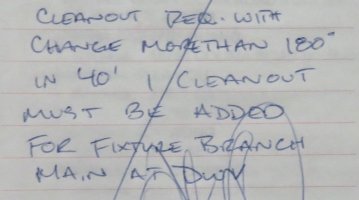 CLEANOUT REQ. WITH
CHANGE MORE THAN 180°
IN 40' 1 CLEANOUT
MUST BE ADDED
FOR FIXTURE BRANCH
MAIN AT